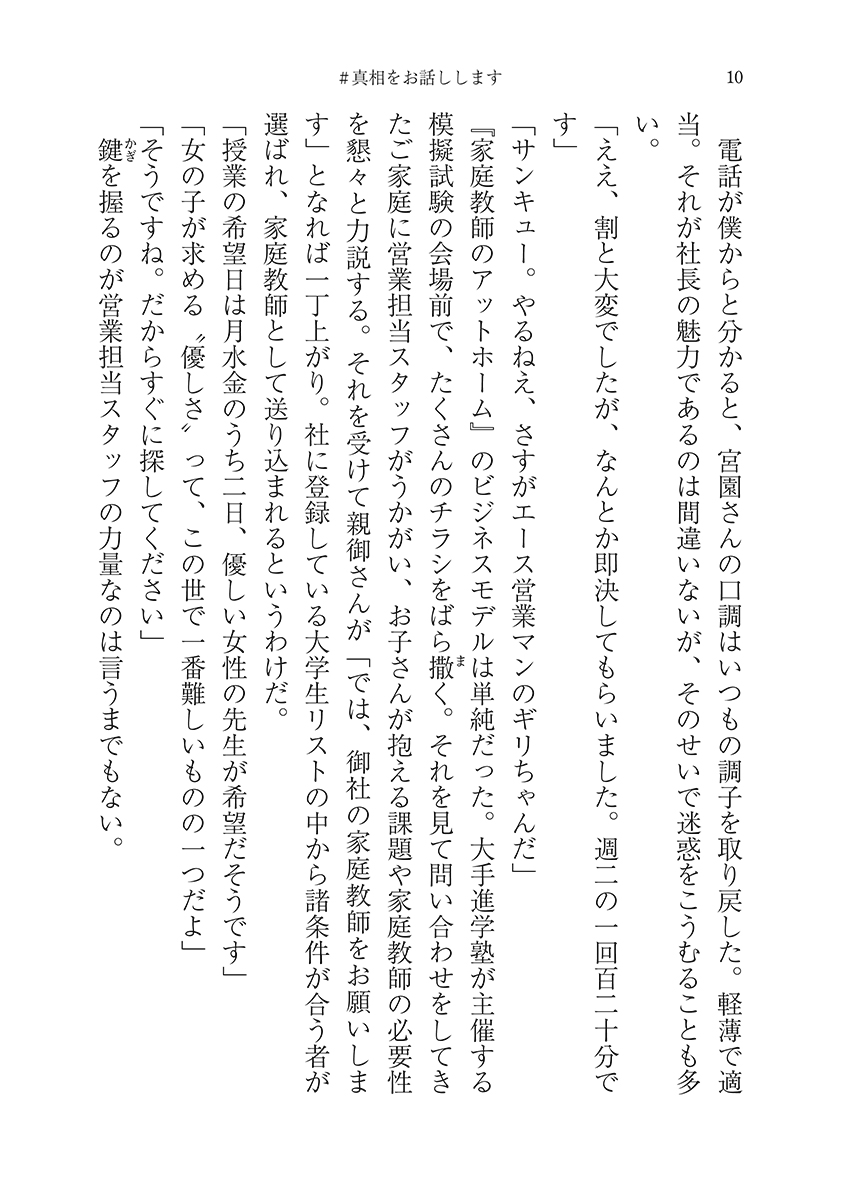 #真相をお話しします
10
電話が僕からと分かると、宮園さんの口調はいつもの調子を取り戻した。軽薄で適
当。それが社長の魅力であるのは間違いないが、そのせいで迷惑をこうむることも多
い。
「ええ、割と大変でしたが、なんとか即決してもらいました。週二の一回百二十分で
す」
「サンキュー。やるねえ、さすがエース営業マンのギリちゃんだ」
『家庭教師のアットホーム』のビジネスモデルは単純だった。大手進学塾が主催する
模擬試験の会場前で、たくさんのチラシをばら撒く。それを見て問い合わせをしてき
たご家庭に営業担当スタッフがうかがい、お子さんが抱える課題や家庭教師の必要性
を懇々と力説する。それを受けて親御さんが「では、御社の家庭教師をお願いしま
す」となれば一丁上がり。社に登録している大学生リストの中から諸条件が合う者が
選ばれ、家庭教師として送り込まれるというわけだ。
「授業の希望日は月水金のうち二日、優しい女性の先生が希望だそうです」
「女の子が求める〝優しさ〟って、この世で一番難しいものの一つだよ」
「そうですね。だからすぐに探してください」
鍵を握るのが営業担当スタッフの力量なのは言うまでもない。